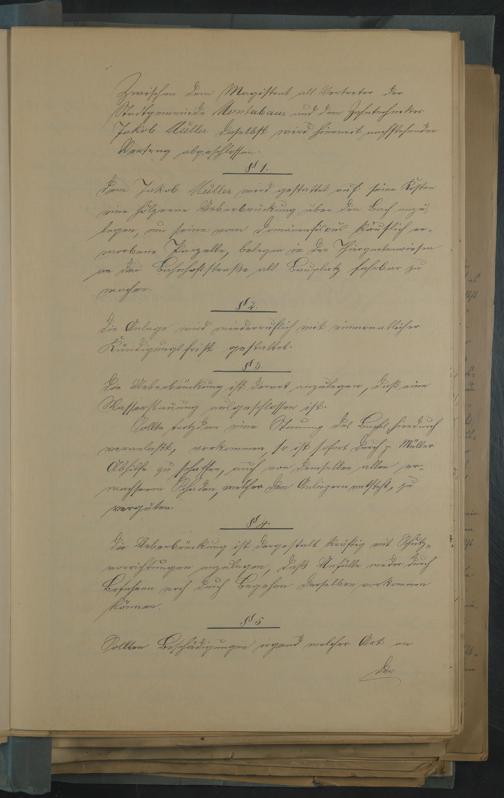 Zwischen dem Magistrat als Vertreter der
Stadtgemeinde Montabaur und dem Zahntechniker
Jakob Müller daselbst wird hiermit nachstehender
Vertrag abgeschlossen.
§ 1.
Dem Jakob Müller wird gestattet auf seine Kosten
eine hölzerne Ueberbrückung über den Bach anzu
legen, um seine vom Domänenfiskus käuflich er-
worbene Parzelle, belegen in den Thiergartenwiesen
an der Bahnhofstraße als Bauplatz fahrbar zu
machen.
§ 2.
Die Anlage wird widerruflich mit einmonatlicher
Kündigungsfrist gestattet.
§ 3.
Die Ueberbrückung ist derart anzulegen, daß eine
Wasserstauung ausgeschlossen ist.
Sollte trotzdem eine Stauung des Baches hierdurch
veranlaßt, vorkommen, so ist sofort durch p. Müller
Abhülfe zu schaffen, auch von demselben aller er-
wachsene Schaden, welcher den Anliegern entsteht, zu
vergüten.
§ 4.
Die Ueberbrückung ist dergestalt kräftig mit Schutz-
vorrichtungen anzulegen, daß Unfälle weder durch
Befahren noch durch Begehen derselben vorkommen
können.
§ 5
Sollten Beschädigungen irgend welcher Art an
der